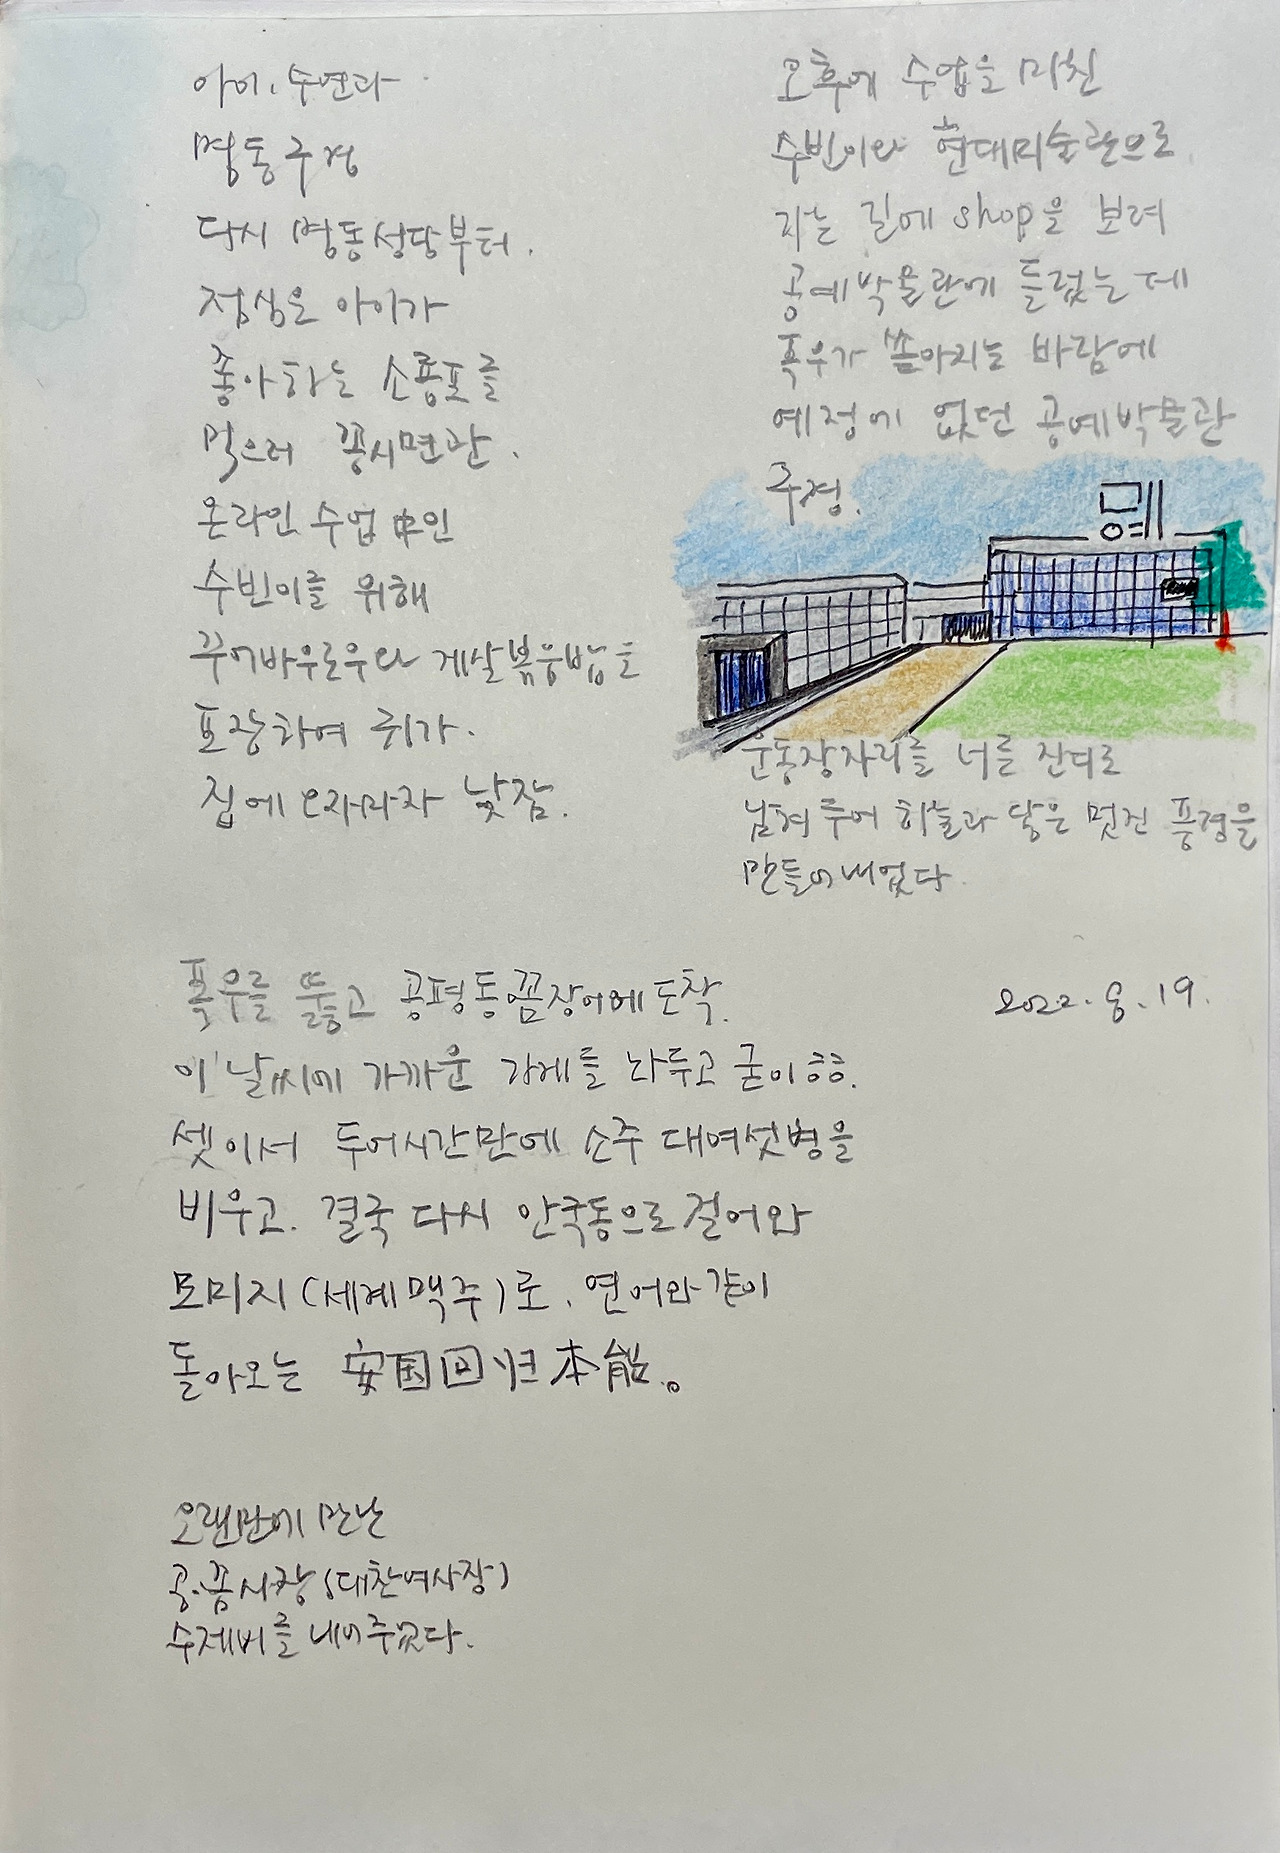 아이, 수연과
명동구경
다시 명동성당부터.
점심은 아이가
좋아하는 소룡포를
먹으러 꽁시면관.
온라인 수업 中인
수빈이를 위해
꾸어바우로우와 게살볶음밥을
포장하여 귀가.
집에 오자마자 낮잠.
오후에 수업을 마친
수빈이와 현대미술관으로
가는 길에 shop을 보려
공예박물관에 들렀는데
폭우가 쏟아지는 바람에
예정에 없던 공예박물관
구경.
공예
운동장자리를 너른 잔디로
남겨두어 하늘과 닿은 멋진 풍경을
만들어내었다.
폭우를 뚫고 공평동꼼장어에 도착.
이 날씨에 가까운 가게를 놔두고 굳이 ㅎㅎ.
셋이서 두어시간만에 소주 대여섯병을
비우고. 결국 다시 안국동으로 걸어와
모미지(세계맥주)로. 연어와 같이
돌아오는 安国回归本能。
2022. 8. 19.
오랜만에 만난
공.꼼사장(대찬여사장)
수제비를 내어주었다.